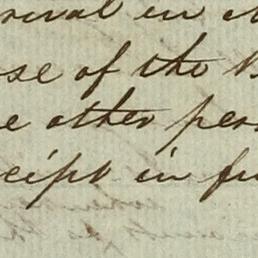 rival in
se of the
e other per
ceipt in fu